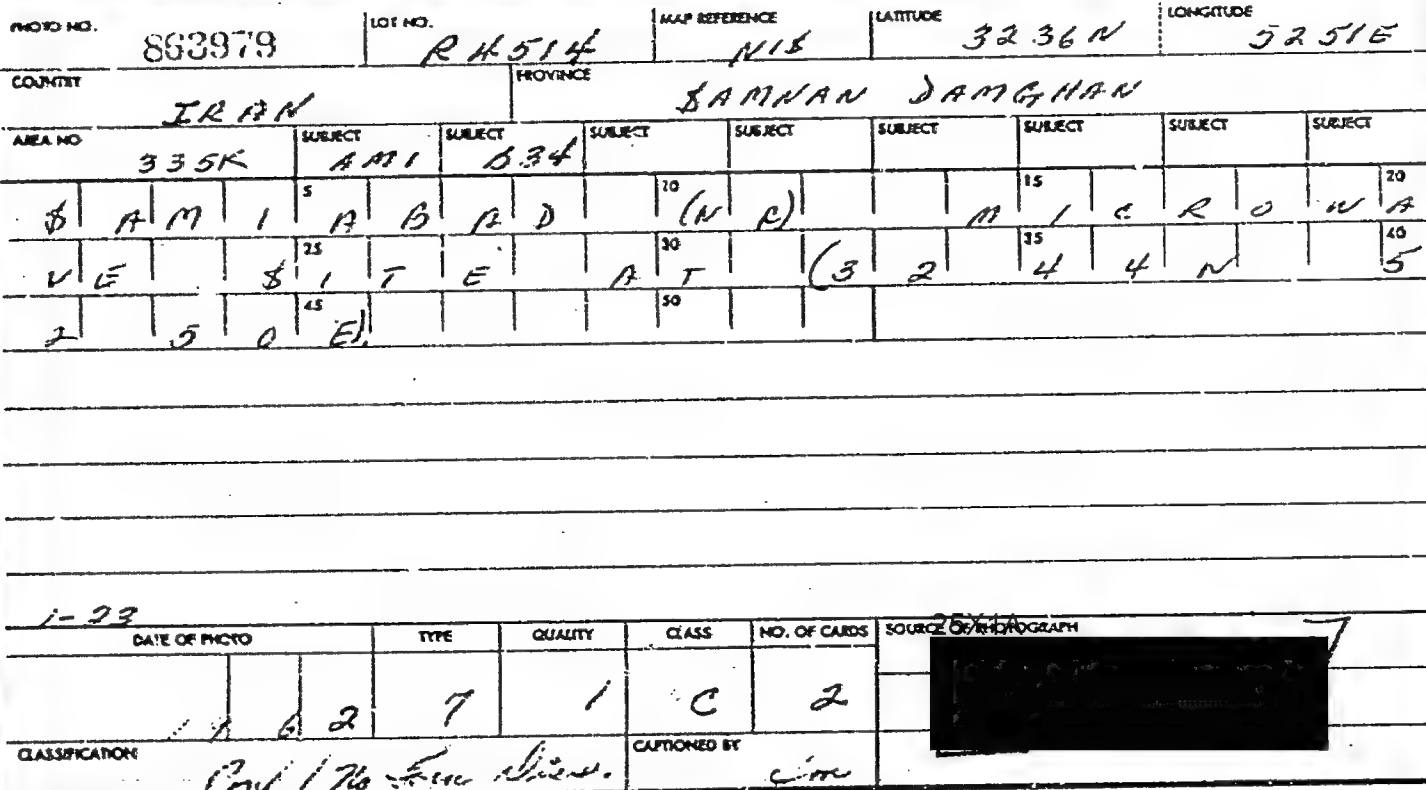 PHOTO NO. 863979 LOT NO. R4514 MAP REFERENCE NIS LATITUDE 32 36 N LONGITUDE 52 51 E
COUNTRY IRAN PROVINCE SAMNAN DAMGHAN
AREA NO 335K SUBJECT AMI SUBJECT B34 SUBJECT SUBJECT SUBJECT SUBJECT SUBJECT SUBJECT
SAMIABAD (NR) MICROWA 5 10 15 20
VE SITE AT (32 44N 5 25 30 35 40
2 50 E). 45 50
1-23
DATE OF PHOTO TYPE QUALITY CLASS NO. OF CARDS SOURCE OF PHOTOGRAPH
1962 7 1 C 2 7
CLASSIFICATION CAPTIONED BY